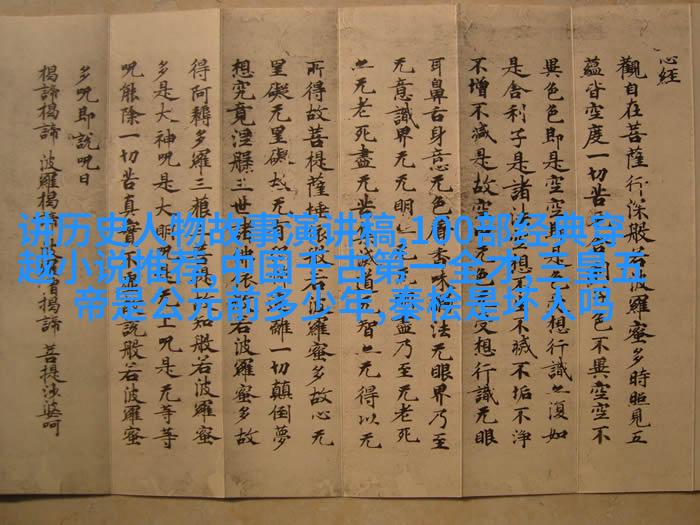 讲历史人物故事演讲稿,100部经典穿
越小说推荐,中国千古第一全才,三皇五
帝是公元前多少年,秦桧是坏人吗
心经
觀自在菩薩行深般若波羅蜜多時照見五
蘊皆空度一切苦色不異空空不
異色色即是空空是色想行識亦復如
是舍利子是諸法想不不滅不垢不淨
不增不減是故空无色受想行識无眼
耳鼻舌身意无色香味法无眼界乃至
无意識界无无明盡乃至无老死
亦无老死盡无苦滅道智亦无得以无
所得故菩提薩埵般若波羅蜜多故心无
罣礙无罣礙故无離一切顛倒夢
想究竟涅槃三世諸佛依若波羅蜜多故
得阿耨多羅三藐故知般若波羅蜜
多是大神呪是大明呪是上呪是无等等
呪能除一切苦真實不說般若波羅蜜
多呪即說呪曰
揭諦揭諦 波羅揭諦 揭諦 菩提娑婆呵